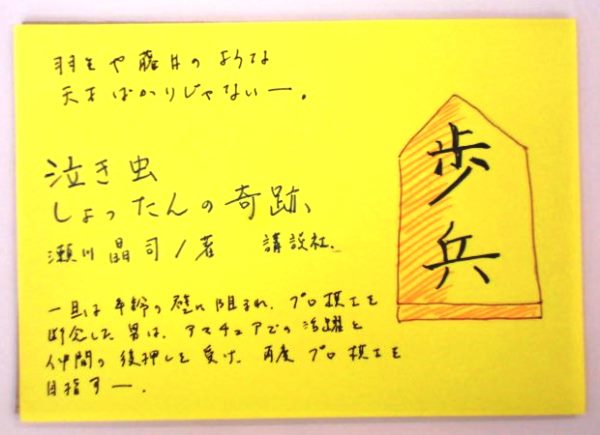 羽生や藤井のような
天才ばかりじゃないー。
泣き虫
しょったんの奇跡
瀬川晶司/著 講談社
一旦は年齢の壁に阻まれ、プロ棋士を
断念した男は、アマチュアでの活躍と
仲間の後押しを受け、再度プロ棋士を
目指すー。
歩兵